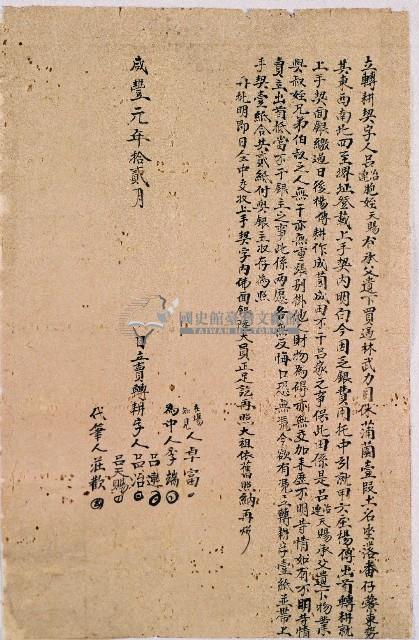 立轉耕契字人呂治連胞姪天賜等承父遺下買過林武力目休蒲蘭壹段土名坐落番仔藔東勢
其東西南北四至界址登載上手契內明白今因乏銀費用托中引就甲六庄楊傳出首轉耕就
上手契面銀繳過日後楊傳耕作成園成田不干呂家之事保此田係是呂治連天賜承父遺下物業
與叔姪兄弟伯叔之人無干亦無重張別掛他人財物為碍亦無交加來歷不明等情如有不明等情
賣主出首抵當不干銀主之事此係兩愿各無反悔口恐無憑今欲有憑立轉耕字壹紙並帶上
手契壹紙合共貳紙付與銀主收存為照
再批明即日仝中交收上手契字內佛面銀 大員正足訖再照大祖依舊照納再炤
在場知見人卓富
為中人李端
咸豐元年拾貳月 日立賣轉耕字人呂治
呂連
呂天賜
代筆人莊歡
國史館臺灣文獻館
TAIWAN HISTORICA